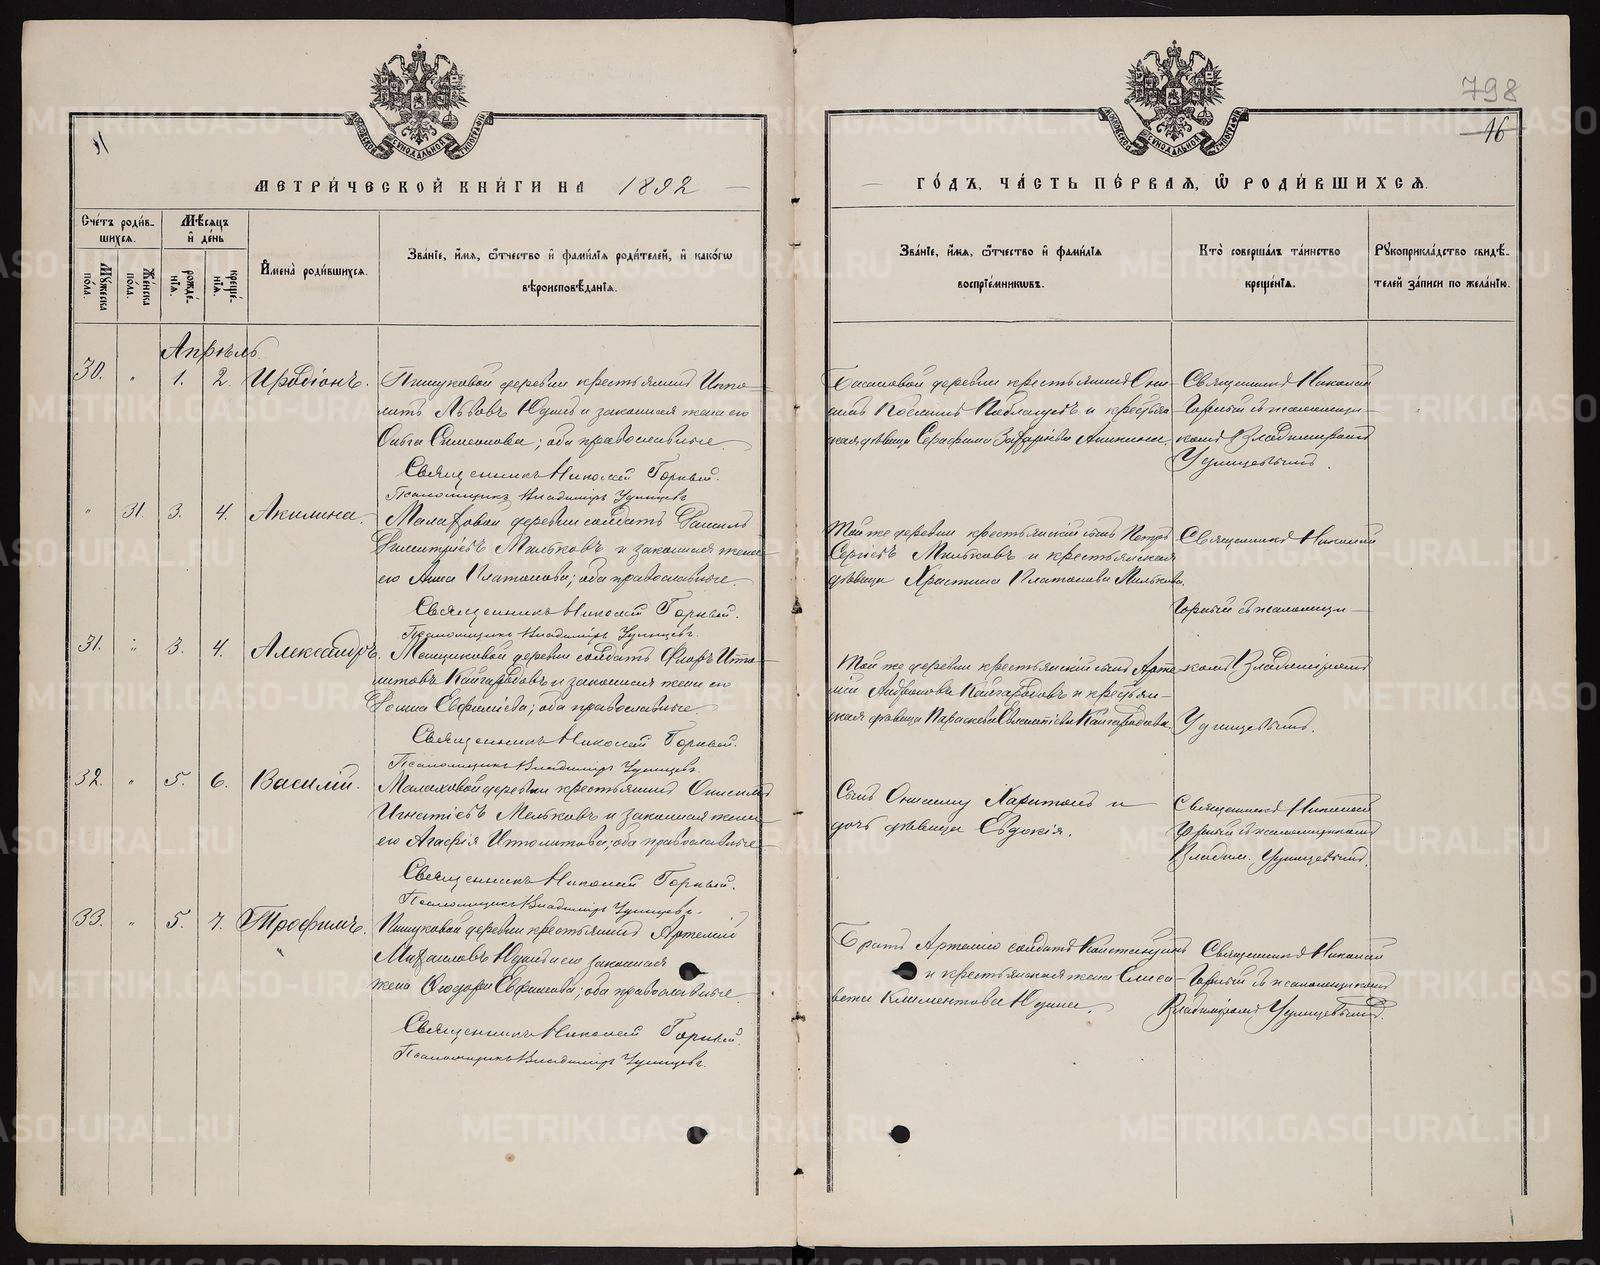 798
16
МЕТРИ́ЧЕСКОЙ КНИ́ГИ НА 1892
ГО́ДЪ, ЧА́СТЬ ПЕ́РВАЯ, Ѡ РОДИ́ВШИХСЯ.
Сче́тъ роди́в-
шихся.
Му́жеска по́ла.
Же́нска по́ла.
Мѣ́сяцъ
и҆ де́нь
рожде́-
нїя.
креще́-
нїя.
И҆мена̀ роди́вшихся.
Зва́нїе, и҆́мя, ѻ҆́тчество и҆ фами́лїя роди́телей, и҆ како́гѡ
вѣроисповѣ́данїя.
Зва́нїе, и҆́мя, ѻ҆́тчество и҆ фами́лїя
воспрїе́мникѡвъ.
Кто̀ соверша́лъ та́инство
креще́нїя.
Рꙋкоприкла́дство свидѣ́-
телей за́писи по жела́нїю.
Апрѣль
30. " 1. 2. Иродіонъ.
деревни крестьянинъ Иппо-
литъ Львовъ Юдинъ и законная жена его
Ольга Симеонова; оба православные
Священникъ Николай Горный.
Псаломщикъ Владиміръ
деревни крестьянинъ
и крестьян-
ская дѣвица Серафима
Священникъ Николай
Горный съ псаломщи-
комъ Владиміромъ
" 31. 3. 4. Акилина.
Малаховой деревни солдатъ
Димитріевъ Мильковъ и законная жена
его Анна Платонова; оба православные
Священникъ Николай Горный.
Псаломщикъ Владиміръ
Той же деревни крестьянскій сынъ Петръ
Сергіевъ Мильковъ и крестьянская
дѣвица Христина Платонова Милькова.
Священникъ Николай
Горный съ псаломщи-
31. " 3. 4. Александръ.
деревни солдатъ Флоръ Иппо-
литовъ Кайгородовъ и законная жена его
Евфиміева; оба православные
Священникъ Николай Горный.
Псаломщикъ Владиміръ
Той же деревни крестьянскій сынъ Арте-
мій Андроновъ Кайгородовъ и крестьян-
ская дѣвица Параскева Кайгородова.
комъ Владиміромъ
32. " 5. 6. Василій.
Малаховой деревни крестьянинъ Онисимъ
Игнатіевъ Мельковъ и законная жена
его Агафія Ипполитова; оба православные
Священникъ Николай Горный.
Псаломщикъ Владиміръ
Сынъ Онисиму Харитонъ и
дочь дѣвица Евдокія.
Священникъ Николай
Горный съ псаломщикомъ
Владим.
33. " 5. 7. Трофимъ.
деревни крестьянинъ Артемій
Михаиловъ Юдинъ и его законная
жена Ѳеодора Евфимова; оба православные
Священникъ Николай Горный.
Псаломщикъ Владиміръ
Братъ Артемію солдатъ Константинъ
и крестьянская жена Елиса-
вета Климентова Юдины.
Священникъ Николай
Горный съ псаломщикомъ
Владиміромъ
METRIKI.GASO-URAL.RU